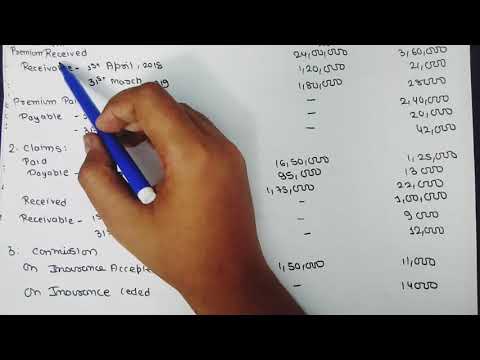 Premium Received 24,00,000 3,60,000
Receivable - 1st April, 2018 1,20,000 21,000
31st March 19 1,80,000 28000
Premium Pai - 2,40,000
Payable - - 20,000
- 31 - 42,000
2. Claims:
Paid 16,50,000 1,25,000
Payable 95,000 13000
1,75,000 22,000
Received - 1,00,000
Receivable - 1s - 9000
31 - 12,000
3. Commission
On Insurance Accepte 1,50,000 11,000
On Insurance Ceded - 14000